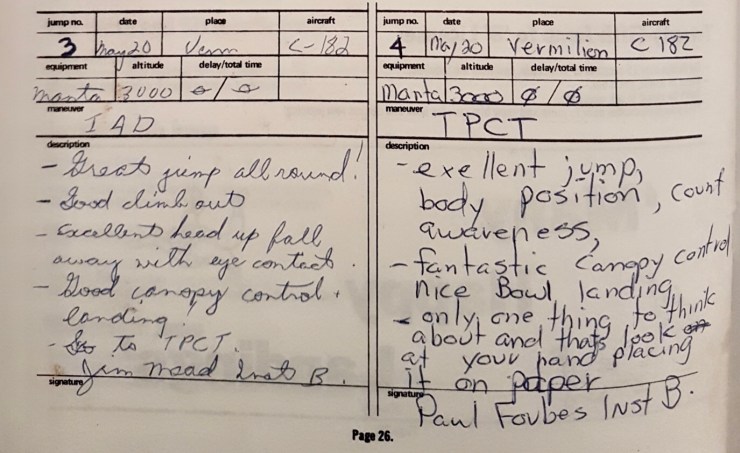 jump no. date place aircraft
3 May 20 Verm C-182
equipment altitude delay/total time
manta 3000 0/0
maneuver
IAD
description
- Great jump all round!
- Good climb out
- Excellent head up fall
away with eye contact.
- Good canopy control +
landing.
- to TPCT.
signature Jim Mead Inst B.
jump no. date place aircraft
4 May 20 Vermilion C 182
equipment altitude delay/total time
Manta 3000 0/0
maneuver
TPCT
description
- exellent jump,
body position, count
awareness,
- fantastic Canopy control
nice Bowl landing
- only one thing to think
about and thats look
at your hand placing
it on paper
signature
Paul Foubes Inst B.
Page 26.